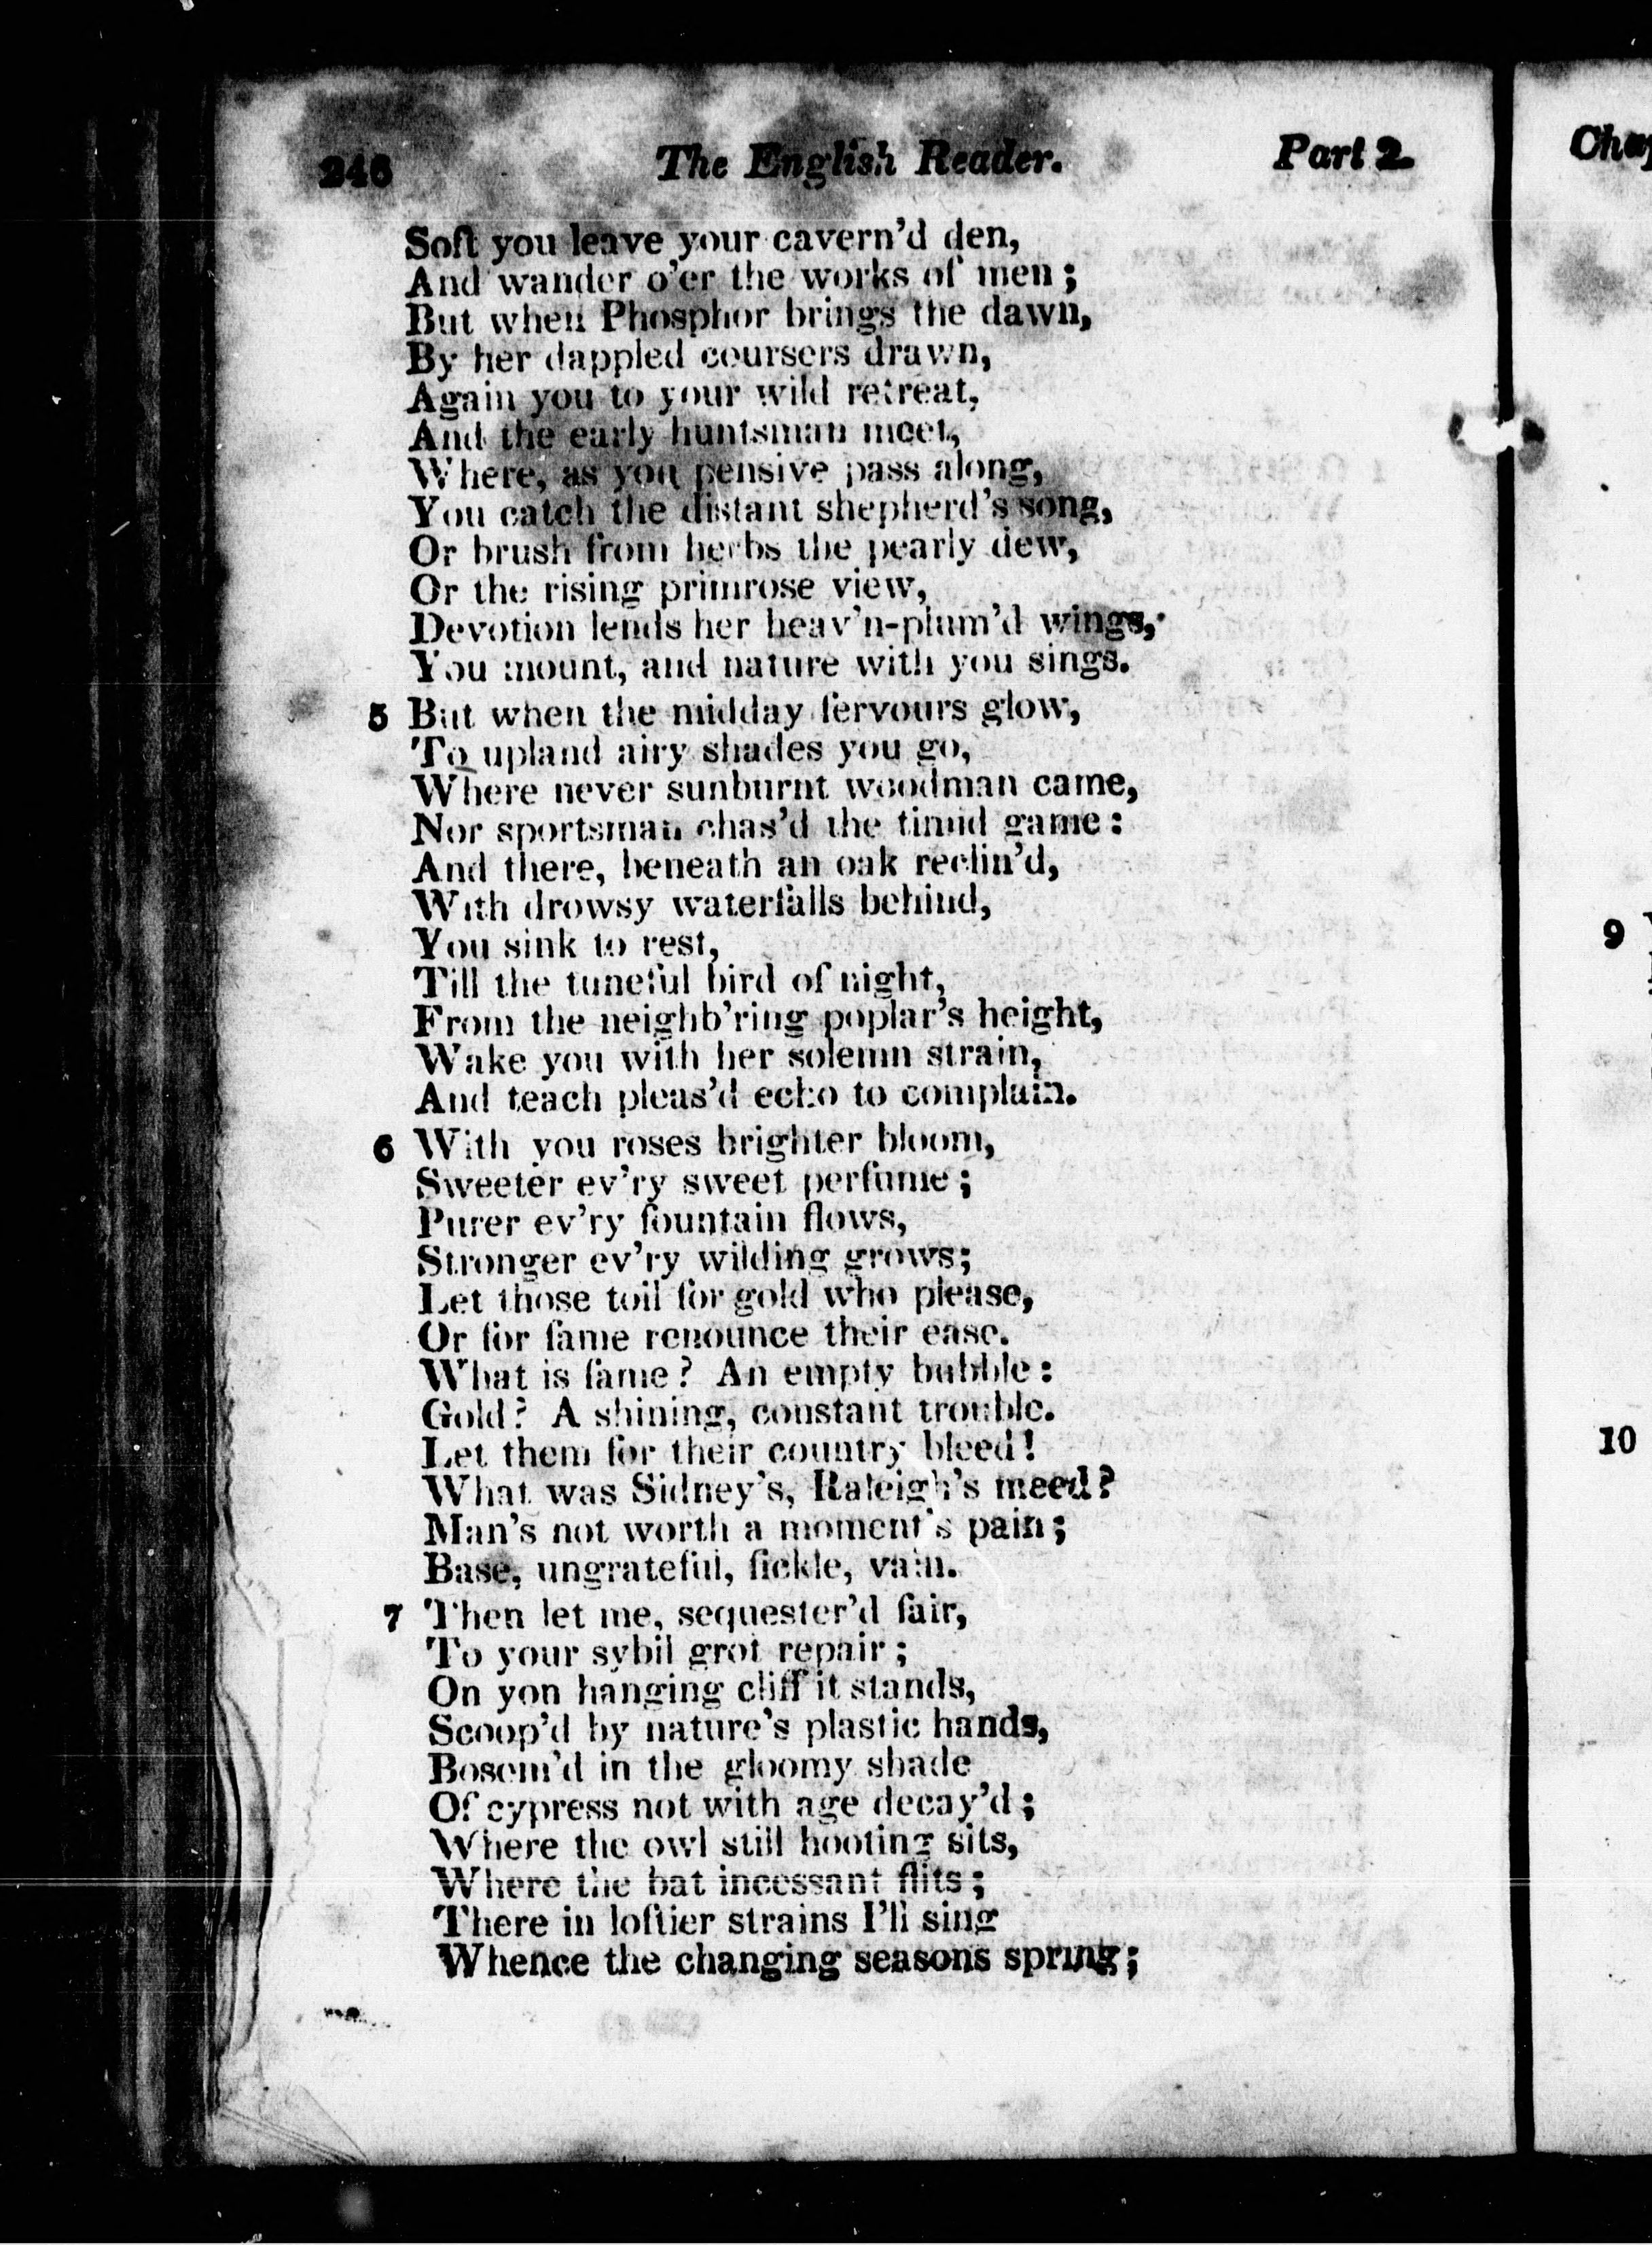 246 The English Reader. Part 2.
Soft you leave your cavern'd den,
And wander o'er the works of men;
But when Phosphor brings the dawn,
By her dappled coursers drawn,
Again you to your wild retreat,
And the early huntsman meet,
Where, as you pensive pass along,
You catch the distant shepherd's song,
Or brush from herbs the pearly dew,
Or the rising primrose view,
Devotion lends her heav'n-plum'd wings,
You mount, and nature with you sings.
5 But when the midday fervours glow,
To upland airy shades you go,
Where never sunburnt woodman came,
Nor sportsman chas'd the timid game:
And there, beneath an oak reclin'd,
With drowsy waterfalls behind,
You sink to rest,
Till the tuneful bird of night,
From the neighb'ring poplar's height,
Wake you with her solemn strain,
And teach pleas'd echo to complain.
6 With you roses brighter bloom,
Sweeter ev'ry sweet perfume;
Purer ev'ry fountain flows,
Stronger ev'ry wilding grows;
Let those toil for gold who please,
Or for fame renounce their ease.
What is fame? An empty bubble:
Gold? A shining, constant trouble.
Let them for their country bleed!
What was Sidney's, Raleigh's meed?
Man's not worth a moment's pain;
Base, ungrateful, fickle, vain.
7 Then let me, sequester'd fair,
To your sybil grot repair;
On yon hanging cliff it stands,
Scoop'd by nature's plastic hands,
Bosom'd in the gloomy shade
Of cypress not with age decay'd;
Where the owl still hooting sits,
Where the bat incessant flits;
There in loftier strains I'll sing
Whence the changing seasons spring;
9
10